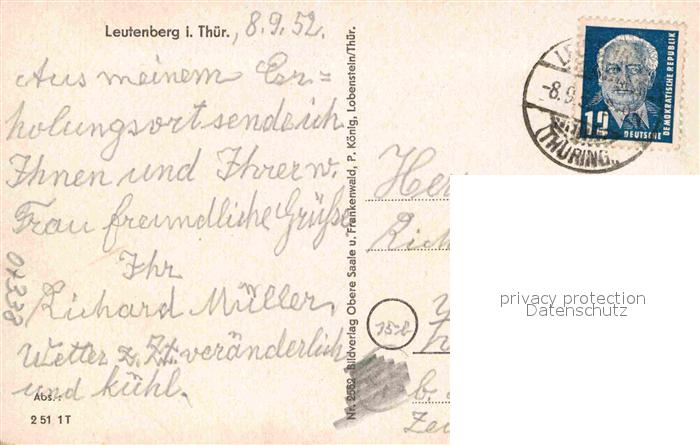 Leutenberg i. Thür., 8.9.52.
Aus meinem Er=
holungsort sende ich
Ihnen und Ihrer w.
Frau freundliche Grüße
Ihr
Richard Müller.
Wetter z. Zt. veränderlich
und kühl.
Abs.:
2 51 1T
01338
Nr. 2562 Bildverlag Obere Saale u. Frankenwald, P. König, Lobenstein/Thür.
-8.9.5
(THÜRING.
12
DEUTSCHE
DEMOKRATISCHE REPUBLIK
Her
Rich
b.
privacy protection
Datenschutz